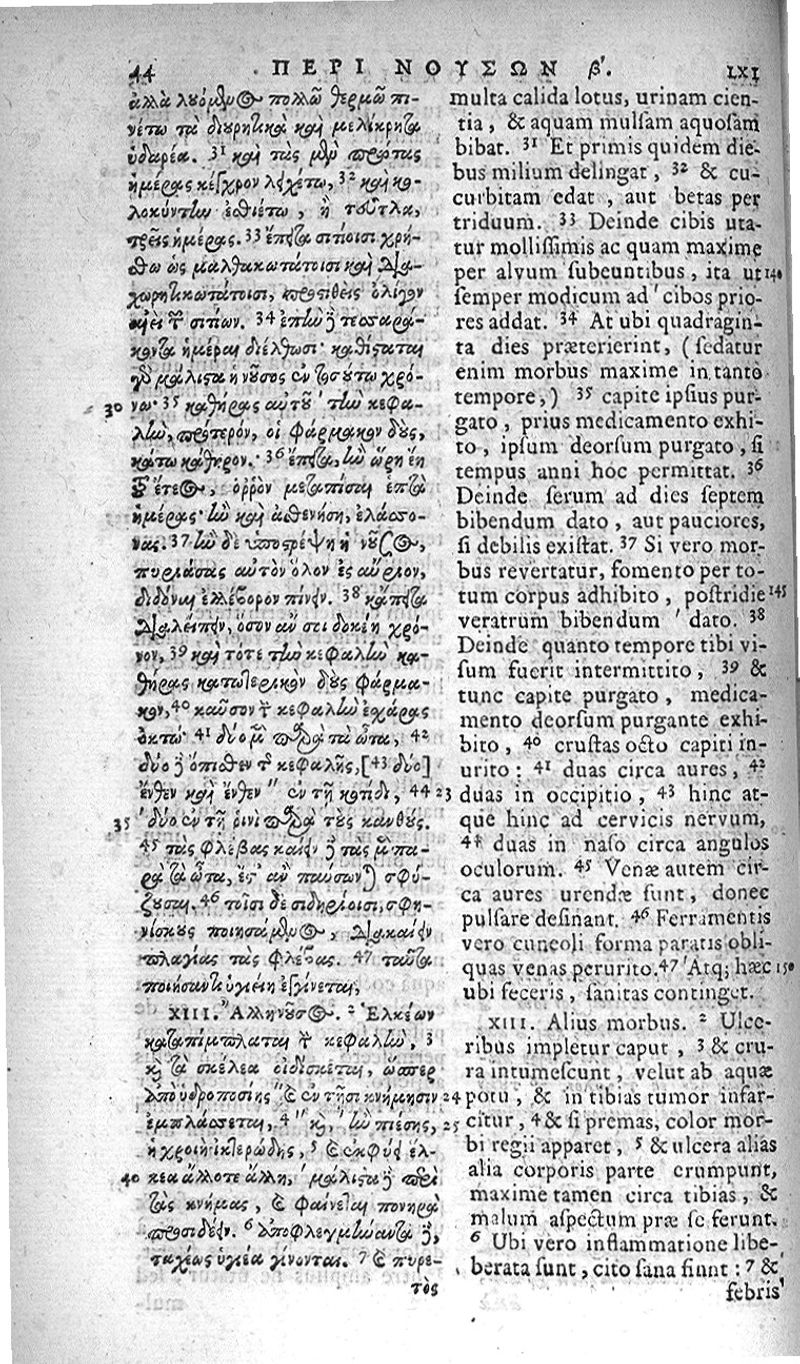 44 ΠΕΡΙ ΝΟΥΣΩΝ β'. LXI
ἀλλὰ λουόμενος πολλῷ θερμῷ πι-
νέτω τὰ διουρητικὰ καὶ μελίκρητα
ὑδαρέα. 31 καὶ τὰς μὲν πρώτας
ἡμέρας κέγχρον λειχέτω, 32 καὶ κο-
λοκύντην ἐσθιέτω, ἢ τοῦτλα,
τρεῖς ἡμέρας. 33 ἔπειτα σιτίοισι χρή-
σθω ὡς μαλθακωτάτοισι καὶ δια-
χωρητικωτάτοισι, προστιθεὶς ὀλίγον
αἰεὶ τῶν σιτίων. 34 ἐπὴν δὲ τεσσαρά-
κοντα ἡμέραι διέλθωσι· καθίσταται
γὰρ μάλιστα ἡ νοῦσος ἐν τοσούτῳ χρό-
30 νῳ· 35 καθήρας αὐτοῦ ' τὴν κεφα-
λὴν, πρότερόν, οἱ φάρμακον δοὺς,
κάτω κάθηρον. 36 ἔπειτα, ἢν ὥρη ἔῃ
τοῦ ἔτεος, ὀῤῥὸν μεταπῖσαι ἑπτὰ
ἡμέρας· ἢν καὶ ἀσθενήσῃ, ἐλάσσο-
νας. 37 ἢν δὲ ὑποστρέψῃ ἡ νοῦσος,
πυριάσας αὐτὸν ὅλον ἐς αὔριον,
διδόναι ἐλλέβορον πίνειν. 38 κἄπειτα
διαλείπειν, ὅσον ἄν σοι δοκέῃ χρό-
νον, 39 καὶ τότε τὴν κεφαλὴν κα-
θήρας κατωτερικὸν δοὺς φάρμα-
κον, 40 καῦσον τὴν κεφαλὴν ἐσχάρας
ὀκτώ· 41 δύο μὲν παρὰ τὰ ὦτα, 42
δύο δὲ ὄπιθεν τῆς κεφαλῆς, [43 δύο]
ἔνθεν καὶ ἔνθεν" ἐν τῇ κοτίδι, 44 23
35 ' δύο ἐν τῇ ῥινὶ παρὰ τοὺς κανθούς.
45 τὰς φλέβας καίειν δὲ τὰς μὲν πα-
ρὰ τὰ ὦτα, ἔς τ' ἂν παύσωνται σφύ-
ζουσαι. 46 τοῖσι δὲ σιδηρίοισι, σφη-
νίσκους ποιησάμενος, διακαίειν
πλαγίας τὰς φλέβας. 47 ταῦτα
ποιήσαντι ὑγιείη ἐγγίνεται.
XIII. Ἄλλη νοῦσος. 2 Ἑλκέων
καταπίμπλαται τὴν κεφαλὴν, 3
καὶ τὰ σκέλεα οἰδίσκεται, ὥσπερ
ἀπὸ ὑδροποσίης καὶ ἐν τῇσι κνήμῃσιν 24
ἐμπλάσσεται, 4 " καὶ, ' ἢν πιέσῃς, 25
ἡ χροιὴ ἰκτερώδης, 5 καὶ ἐκφύει ἕλ-
40 κεα ἄλλοτε ἄλλῃ, ' μάλιστα δὲ περὶ
τὰς κνήμας, καὶ φαίνεται πονηρὰ
προσιδεῖν. 6 ἀποφλεγμήναντα δὲ,
ταχέως ὑγιέα γίνονται. 7 καὶ πυρε-
τὸς
multa calida lotus, urinam cien-
tia, & aquam mulsam aquosam
bibat. 31 Et primis quidem die-
bus milium delingat, 32 & cu-
curbitam edat, aut betas per
triduum. 33 Deinde cibis uta-
tur mollissimis ac quam maxime
per alvum subeuntibus, ita ut 140
semper modicum ad ' cibos prio-
res addat. 34 At ubi quadragin-
ta dies præterierint, (sedatur
enim morbus maxime in tanto
tempore,) 35 capite ipsius pur-
gato, prius medicamento exhi-
to, ipsum deorsum purgato, si
tempus anni hoc permittat. 36
Deinde serum ad dies septem
bibendum dato, aut pauciores,
si debilis existat. 37 Si vero mor-
bus revertatur, fomento per to-
tum corpus adhibito, postridie 145
veratrum bibendum ' dato. 38
Deinde quanto tempore tibi vi-
sum fuerit intermittito, 39 &
tunc capite purgato, medica-
mento deorsum purgante exhi-
bito, 40 crustas octo capiti in-
urito: 41 duas circa aures, 42
duas in occipitio, 43 hinc at-
que hinc ad cervicis nervum,
44 duas in naso circa angulos
oculorum. 45 Venæ autem cir-
ca aures urendæ sunt, donec
pulsare desinant. 46 Ferramentis
vero cuneoli forma paratis obli-
quas venas perurito. 47 'Atq; hæc 150
ubi feceris, sanitas continget.
XIII. Alius morbus. 2 Ulce-
ribus impletur caput, 3 & cru-
ra intumescunt, velut ab aquæ
potu, & in tibias tumor infar-
citur, 4 & si premas, color mor-
bi regii apparet, 5 & ulcera alias
alia corporis parte erumpunt,
maxime tamen circa tibias, &
malum aspectum præ se ferunt.
6 Ubi vero inflammatione libe-
berata sunt, cito sana fiunt: 7 &
febris